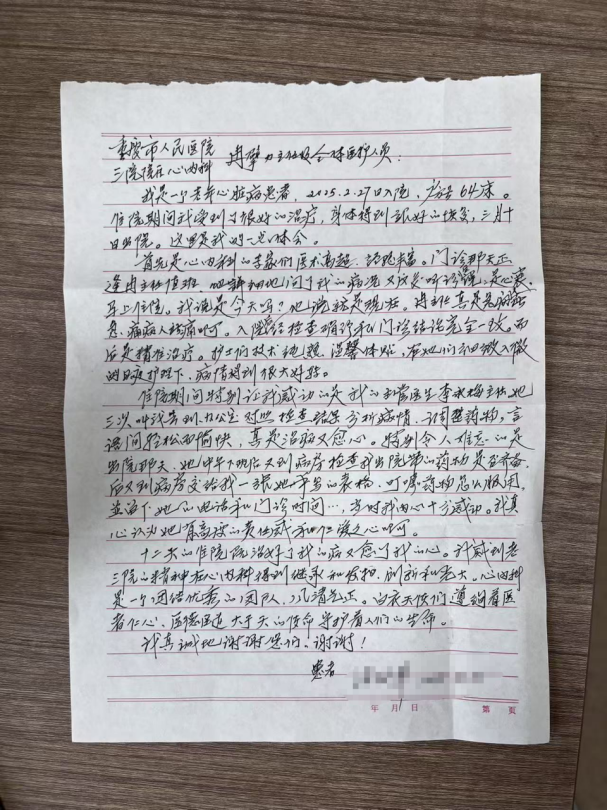 重庆市人民医院
三院院区心内科 冉擘力主任及全体医护人员：
我是一个老年心脏病患者，2025.2.27日入院，住 64床。
住院期间我受到了很好的治疗，身体得到很好的恢复，三月十
日出院。这里是我的一点体会。
首先是心内科的专家们医术高超、经验丰富。门诊那天正
逢冉主任值班，她详细地问了我的病况又反复听诊，是心衰，
马上住院。我说是今天吗？他说就是现在。冉主任真是急病人所
急，痛病人所痛啊。入院后经检查确诊和门诊结论完全一致。而
后是精准治疗。护士们技术纯熟、温馨体贴，在她们细微入微
的日夜护理下，病情得到很大好转。
住院期间特别让我感动的是我的主管医生李永梅主任，她
三次叫我去到办公室对照检查结果分析病情、调整药物，言
语间轻松而愉快，真是治病又愈心。特别令人难忘的是
出院那天，她中午下班后又到病房检查我出院带的药物是否齐备，
后又到病房交给我一张她手写的表格，叮嘱药物怎么服用，
并留下她的电话和门诊时间…，当时我内心十分感动。我真
心认为她有高度的责任感和仁爱之心啊。
十二天的住院院治好了我的病又愈了我的心。我感到老
三院的精神在心内科得到继承和发扬、创新和光大。心内科
是一个团结优秀的团队，风清气正。白衣天使们遵循着医
者仁心、医德医道大于天的使命守护着人们的生命。
我真诚地谢谢您们。谢谢！
患者
年 月 日 第 页